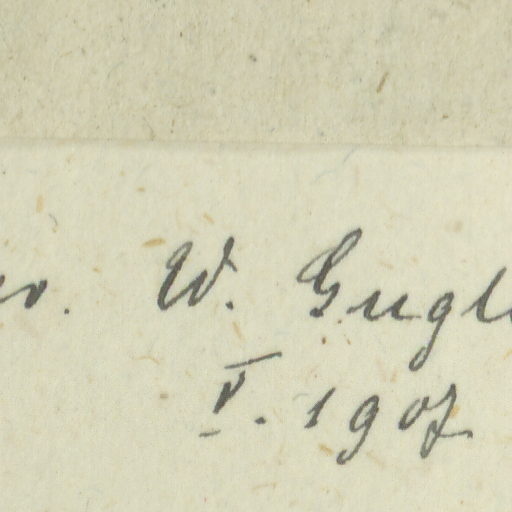 W. Gugl
V. 1907